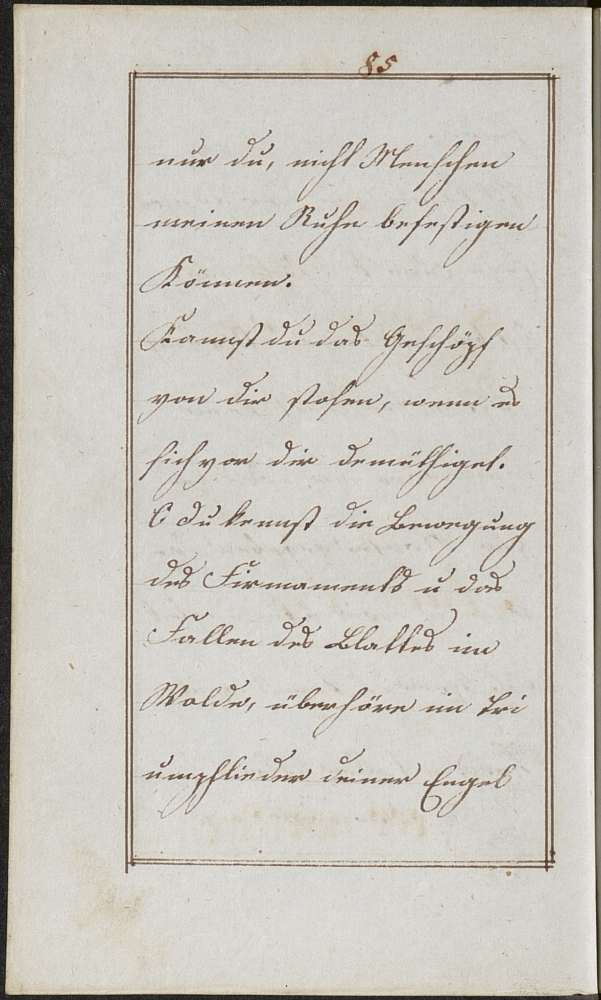 85
nur du, nicht Menschen
meinen Ruhe befestigen
Können.
Kannst du das Geschöpf
von dir stosen, wenn es
sich vor dir demüthiget.
O du kennst die Bewegung
des Firmaments u das
Fallen des Blattes im
Walde, überhöre im Tri
umphlieder deiner Engel